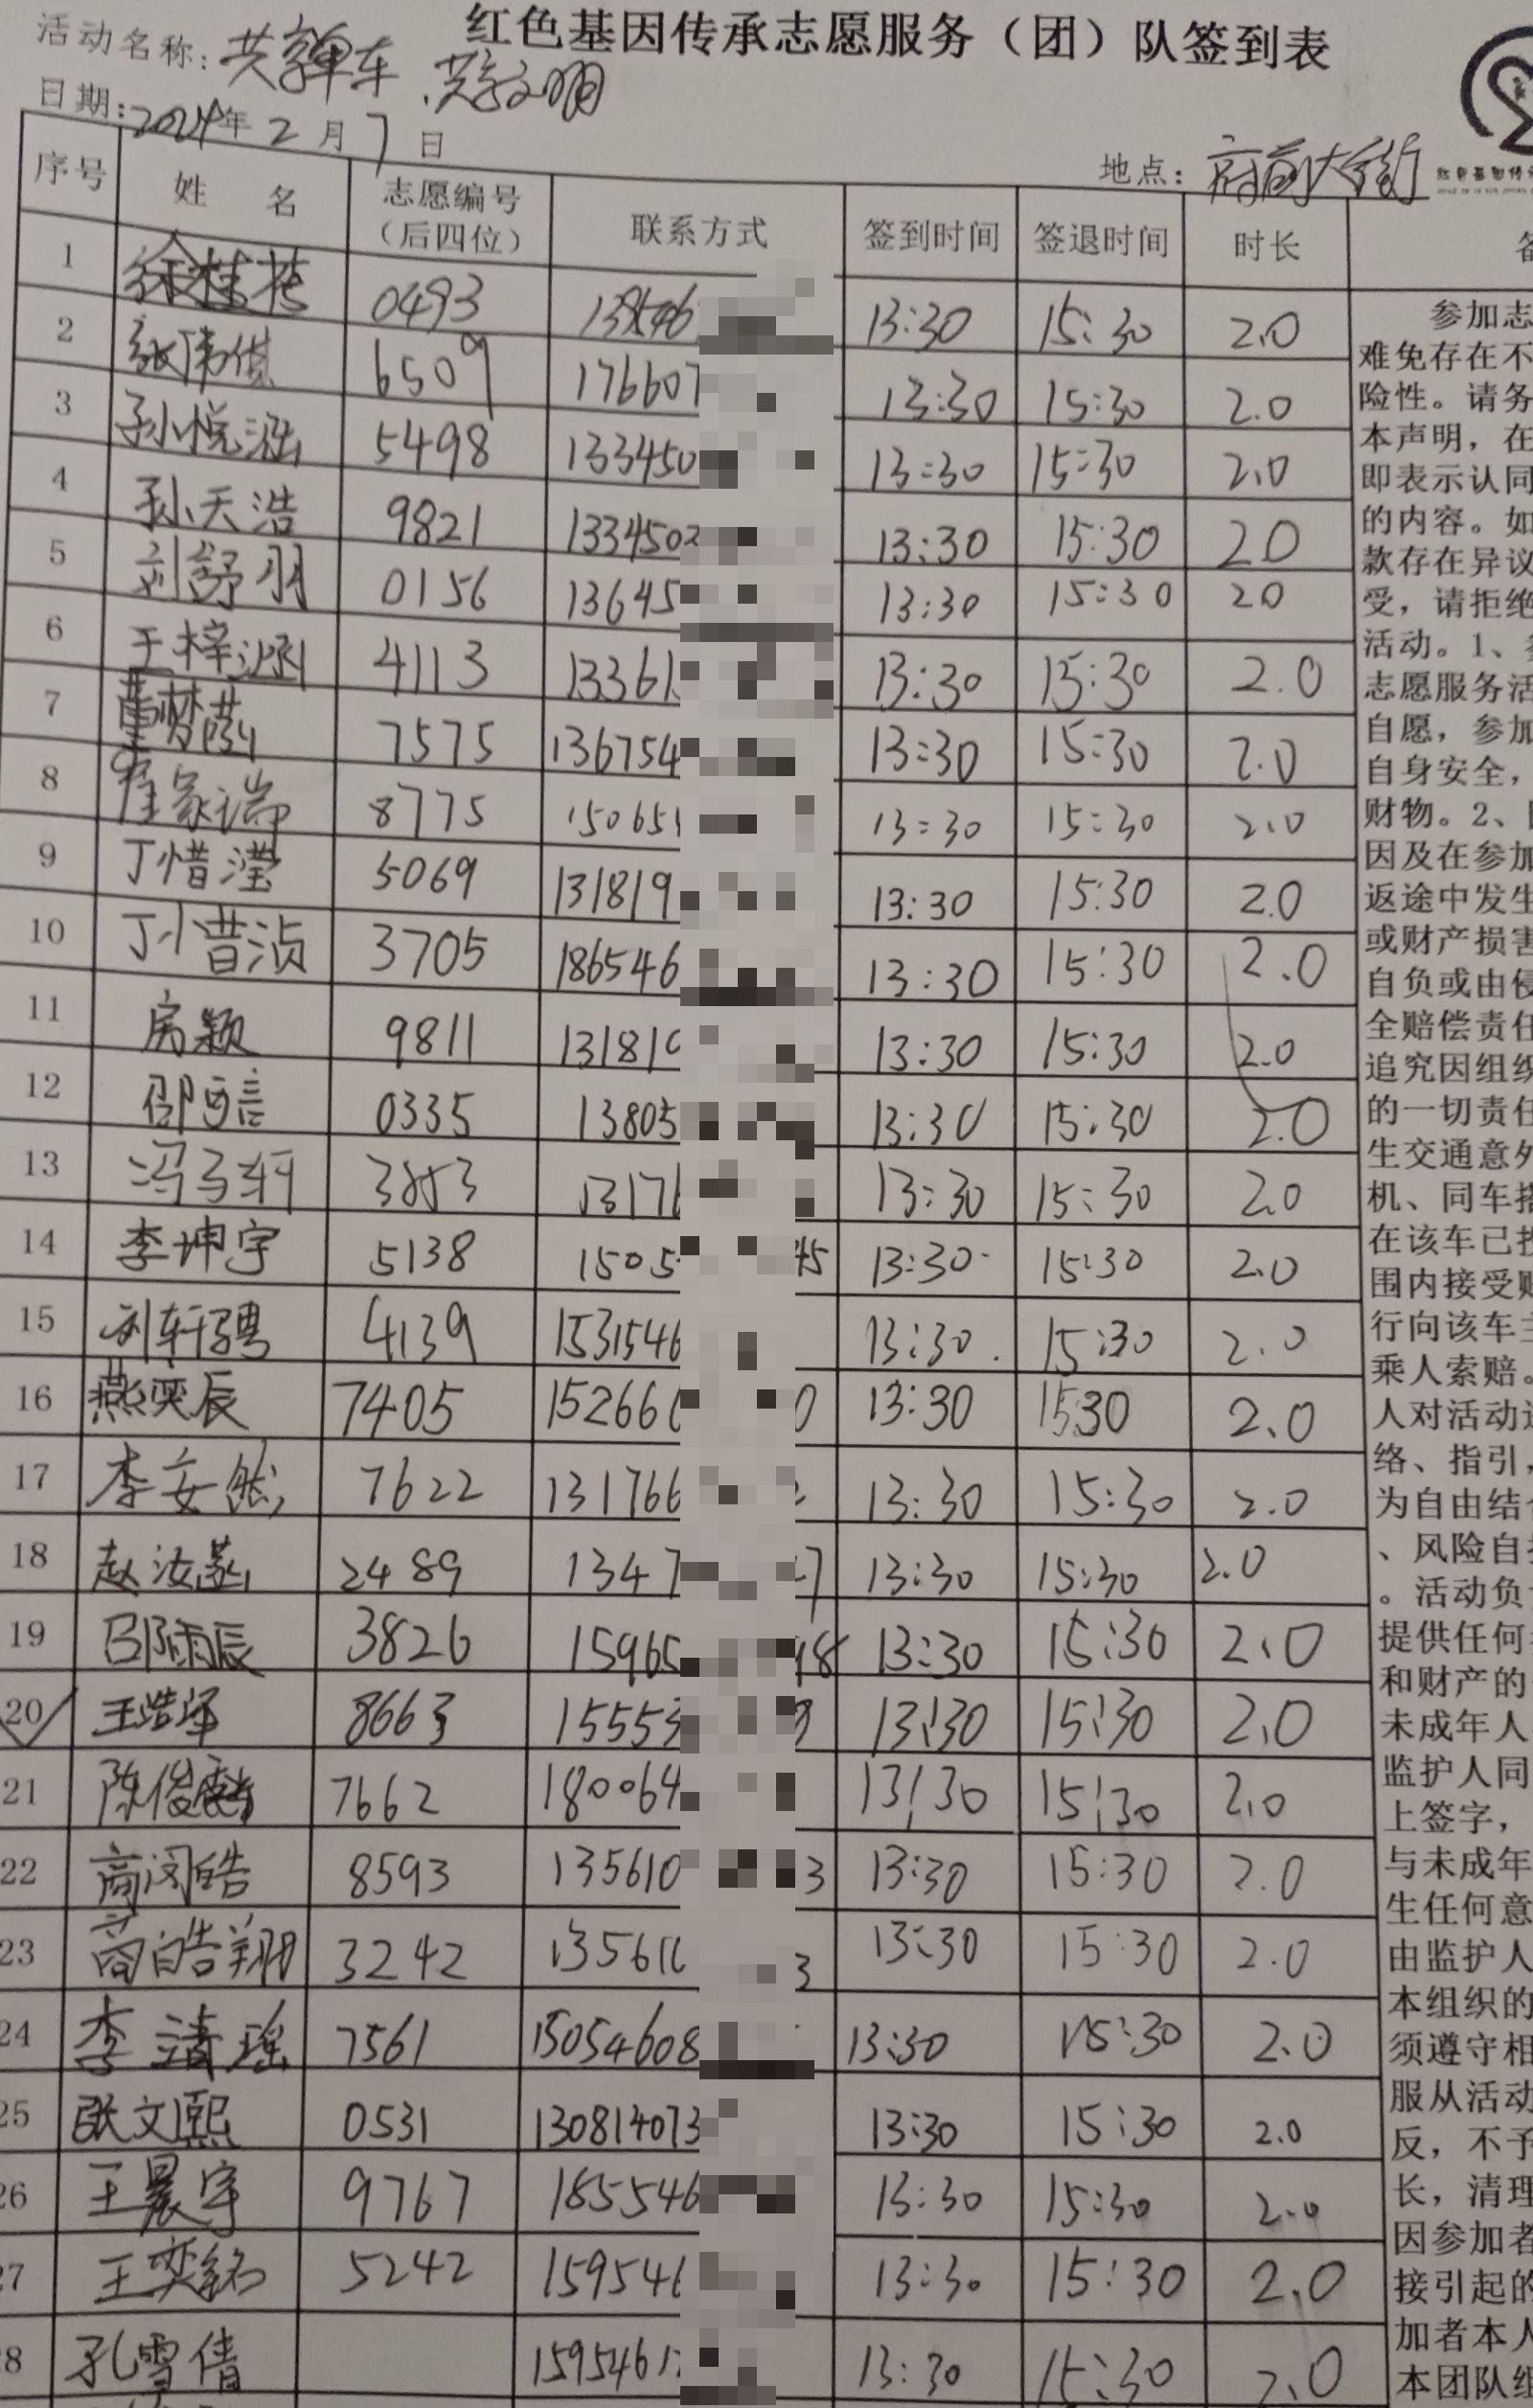 红色基因传承志愿服务（团）队签到表
活动名称：共享单车、共享文明
日期：2024年2月7日
地点：府前大街
序号 姓名 志愿编号（后四位） 联系方式 签到时间 签退时间 时长
1 徐桂芪 0493 13:30 15:30 2.0
2 张伟祺 6509 176607 13:30 15:30 2.0
3 孙悦涵 5498 133450 13:30 15:30 2.0
4 孙天浩 9821 1334502 13:30 15:30 20
5 刘舒羽 0156 13645 13:30 15:30 20
6 于梓涵 4113 13361 13:30 15:30 2.0
7 董梦茹 7575 136754 13:30 15:30 2.0
8 崔家瑞 8775 15065 13:30 15:30 2.0
9 丁惜滢 5069 131819 13:30 15:30 2.0
10 丁小昔浈 3705 186546 13:30 15:30 2.0
11 房颖 9811 13181 13:30 15:30 2.0
12 邵言 0335 13805 13:30 15:30 2.0
13 冯子轩 3853 1317 13:30 15:30 2.0
14 李坤宇 5138 1505 45 13:30 15:30 2.0
15 刘轩骋 4139 1531546 13:30 15:30 2.0
16 燕奕辰 7405 152666 0 13:30 1530 2.0
17 李安然 7622 131766 13:30 15:30 2.0
18 赵汝 2489 1347 7 13:30 15:30 2.0
19 邵雨辰 3826 15965 98 13:30 15:30 2.0
20 王浩泽 8663 15553 13:30 15:30 2.0
21 陈俊麟 7662 180064 13:30 15:30 2.0
22 商阁皓 8593 135610 3 13:30 15:30 2.0
23 商皓翔 3242 13561 3 13:30 15:30 2.0
24 李清瑶 7561 15054608 13:30 15:30 2.0
25 张文熙 0531 130814073 13:30 15:30 2.0
26 王晨宇 9767 185546 13:30 15:30 2.0
27 王奕铭 5242 159546 13:30 15:30 2.0
28 孔雪倩 1595461 13:30 15:30 2.0
参加志
难免存在不
险性。请务
本声明，在
即表示认同
的内容。如
款存在异议
受，请拒绝
活动。1、参
志愿服务活
自愿，参加
自身安全，
财物。2、
因及在参加
返途中发生
或财产损害
自负或由侵
全赔偿责任
追究因组织
的一切责任
生交通意外
机、同车搭
在该车已投
围内接受赔
行向该车主
乘人索赔。
人对活动进
络、指引，
为自由结合
、风险自担
。活动负责
提供任何
和财产的
未成年人
监护人同
上签字，
与未成年
生任何意
由监护人
本组织的
须遵守相
服从活动
反，不予
长，清理
因参加者
接引起的
加者本人
本团队组